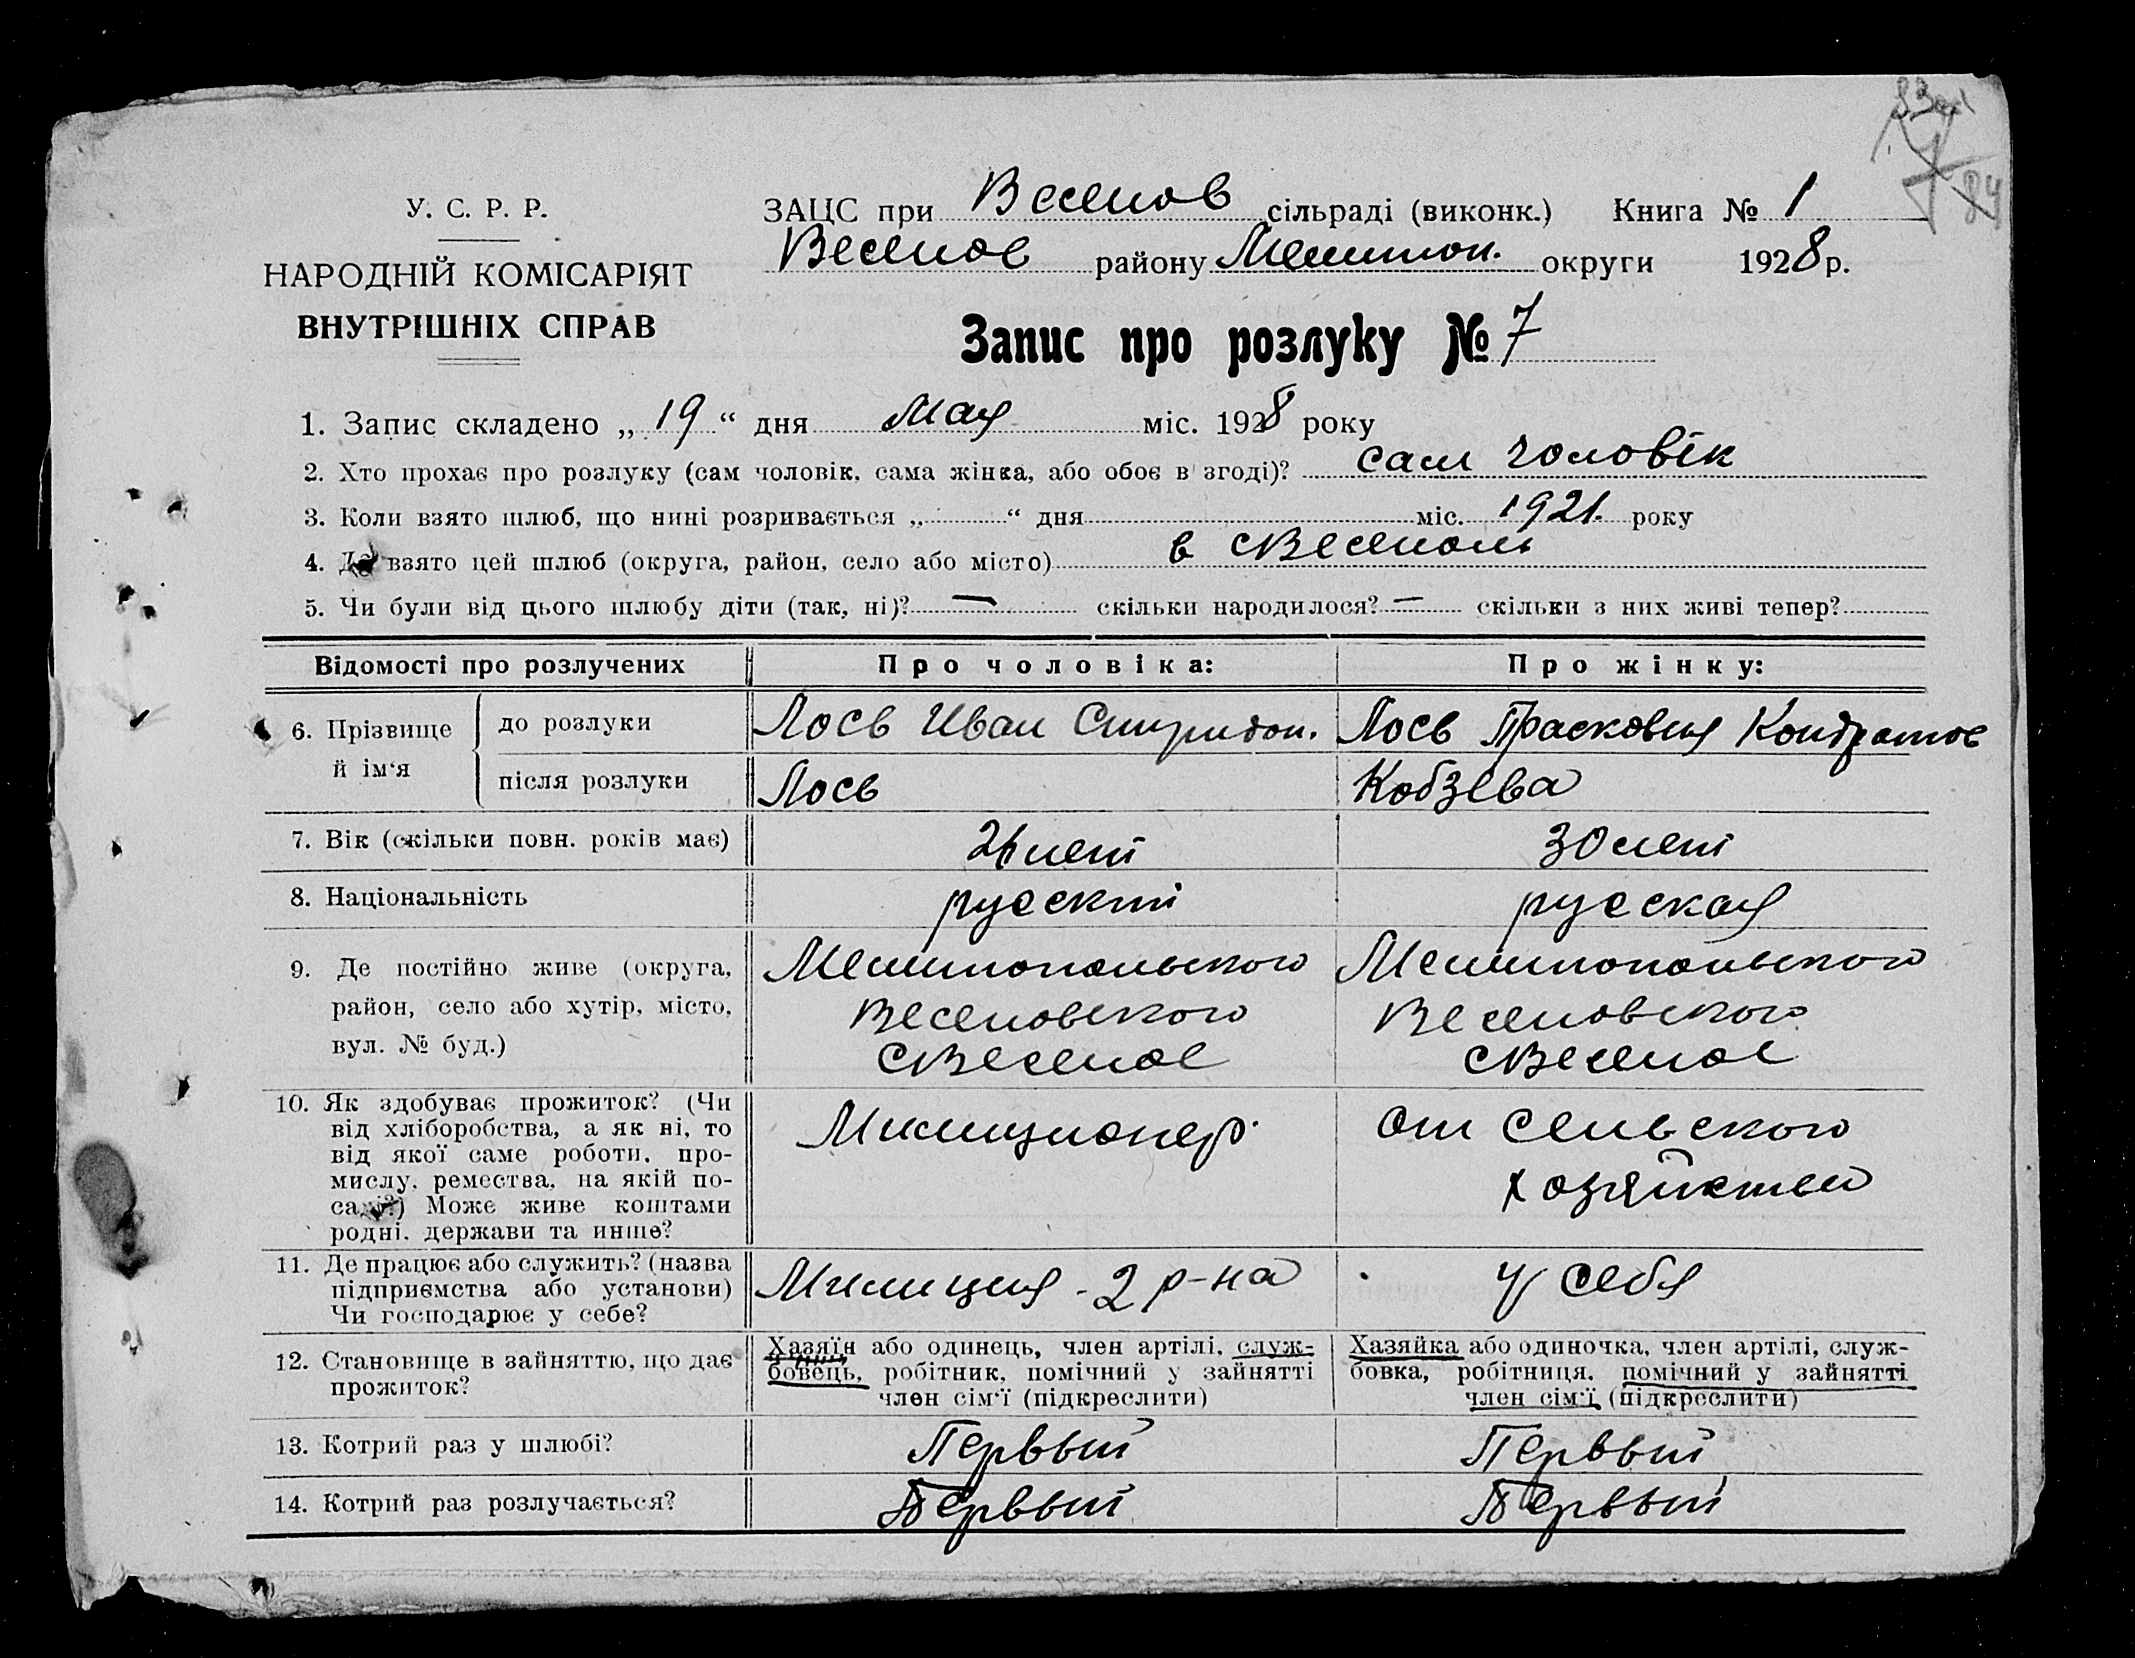 83
84
У. С. Р. Р.
НАРОДНІЙ КОМІСАРІЯТ
ВНУТРІШНІХ СПРАВ
ЗАЦС при Веселов сільраді (виконк.) Книга № 1
Веселов району Мелитоп. округи 1928 р.
Запис про розлуку № 7
1. Запис складено „ 19 “ дня Мая міс. 1928 року
2. Хто прохає про розлуку (сам чоловік, сама жінка, або обоє в згоді)? сам чоловік
3. Коли взято шлюб, що нині розривається „ “ дня міс. 1921. року
4. Де взято цей шлюб (округа, район, село або місто) в с Веселом
5. Чи були від цього шлюбу діти (так, ні)? — скільки народилося? — скільки з них живі тепер?
Відомості про розлучених Про чоловіка: Про жінку:
6. Прізвище й ім‘я до розлуки Лось Иван Спиридон. Лось Прасковия Кондратов
після розлуки Лось Кобзева
7. Вік (скільки повн. років має) 26 лет 30 лет
8. Національність русский русская
9. Де постійно живе (округа, Мелитопольского Мелитопольского
район, село або хутір, місто, Веселовского Веселовского
вул. № буд.) с Веселое с Веселое
10. Як здобуває прожиток? (Чи Милиционер. От Сельского
від хліборобства, а як ні, то хозяйства
від якої саме роботи, про-
мислу, ремества, на якій по-
саді?) Може живе коштами
родні, держави та инше?
11. Де працює або служить? (назва Милиция - 2 р-на У себя
підприємства або установи)
Чи господарює у себе?
12. Становище в зайняттю, що дає прожиток?
Хазяїн або одинець, член артілі, служ-
бовець, робітник, помічний у зайнятті
член сім‘ї (підкреслити)
Хазяйка або одиночка, член артілі, служ-
бовка, робітниця, помічний у зайнятті
член сім‘ї (підкреслити)
13. Котрий раз у шлюбі? Первый Первый
14. Котрий раз розлучається? Первый Первый